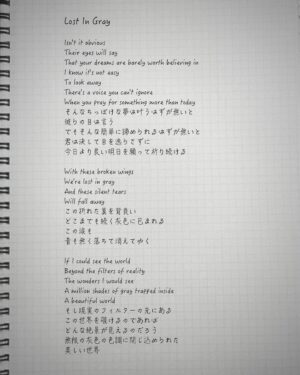 Lost In Gray
Isn't it obvious
Their eyes will say
That your dreams are barely worth believing in
I know it's not easy
To look away
There's a voice you can't ignore
When you pray for something more than today
そんなちっぽけな夢は叶うはずが無いと
彼らの目は言う
でもそんな簡単に諦められるはずが無いと
君は決して目を逸らさずに
今日より良い明日を願って祈り続ける
With these broken wings
We're lost in gray
And these silent tears
Will fall away
この折れた翼を背負い
どこまでも続く灰色に包まれる
この涙も
音も無く落ちて消えてゆく
If I could see the world
Beyond the filters of reality
The wonders I would see
A million shades of gray trapped inside
A beautiful world
もし現実のフィルターの先にある
この世界を覗けるのであれば
どんな絶景が見えるのだろう
無数の灰色の色調に閉じ込められた
美しい世界